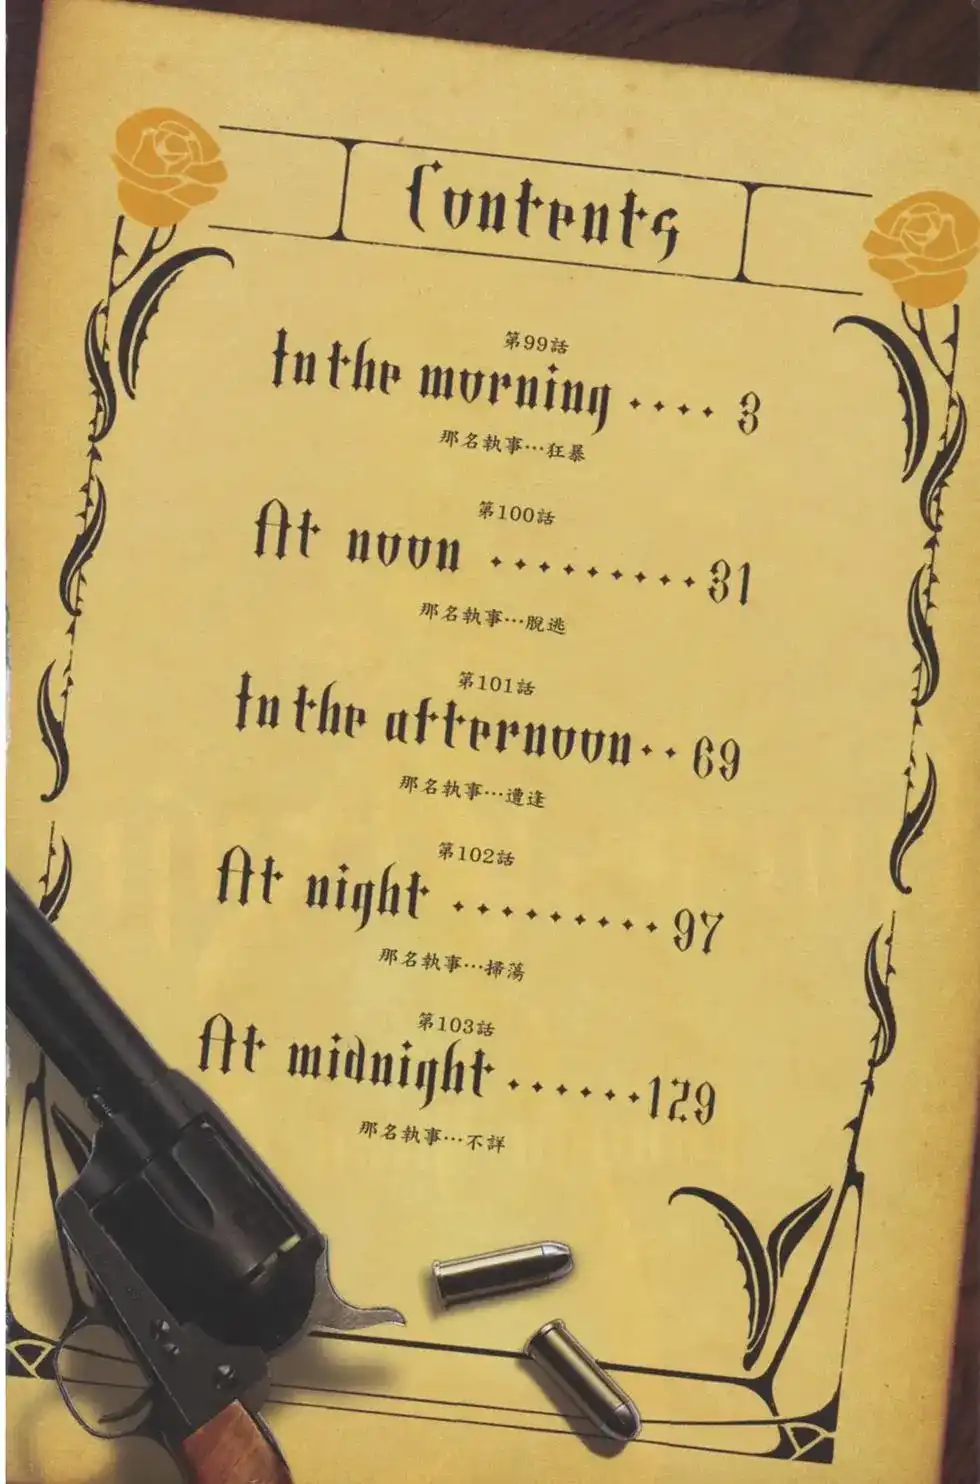 Contents
第99話
In the morning ···· 3
那名執事…狂暴
第100話
At noon ········· 31
那名執事…脫逃
第101話
In the afternoon ·· 69
那名執事…遭逢
第102話
At night ········· 97
那名執事…掃蕩
第103話
At midnight ······ 129
那名執事…不詳